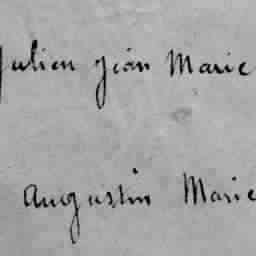 Julien Jean Marie
Augustin Marie